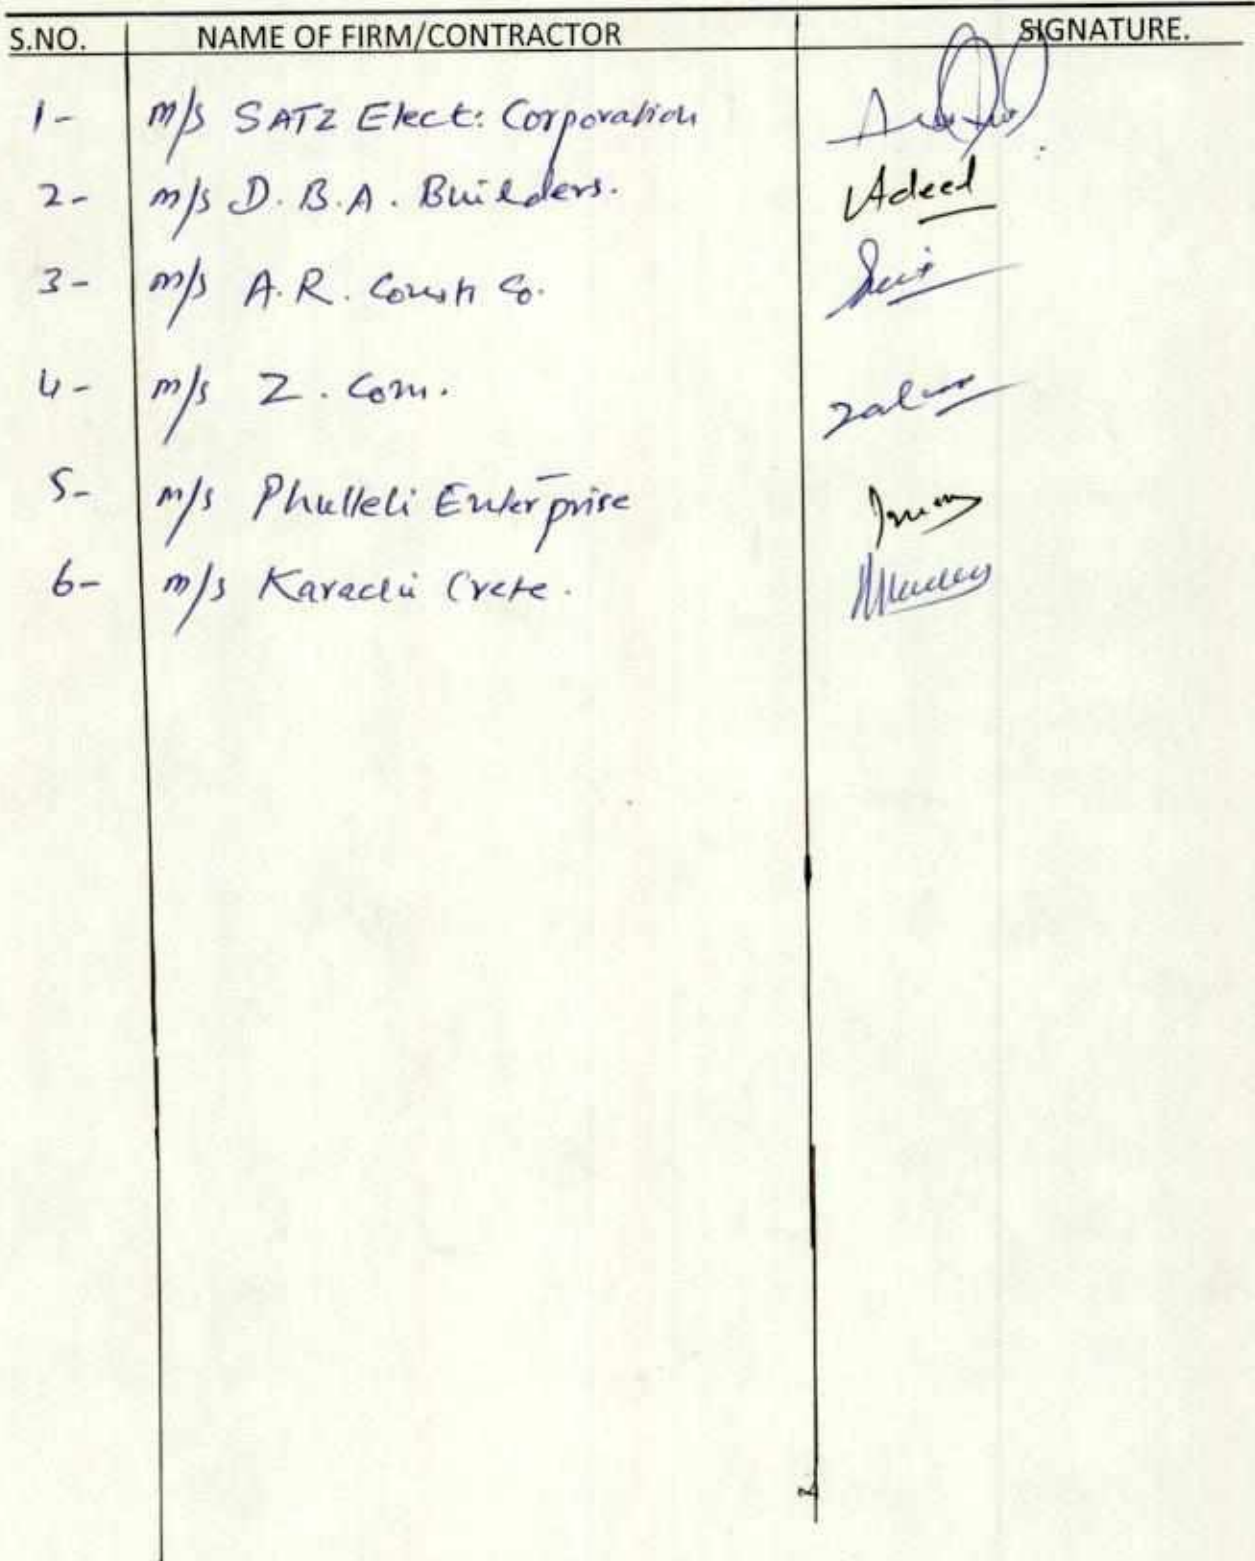 S.NO. NAME OF FIRM/CONTRACTOR SIGNATURE.
1- m/s SATZ Elect: Corporation
2- m/s D.B.A. Builders. Adeel
3- m/s A.R. Const Co.
4- m/s Z. Com.
5- m/s Phulleli Enterprise
6- m/s Karachi Crete.